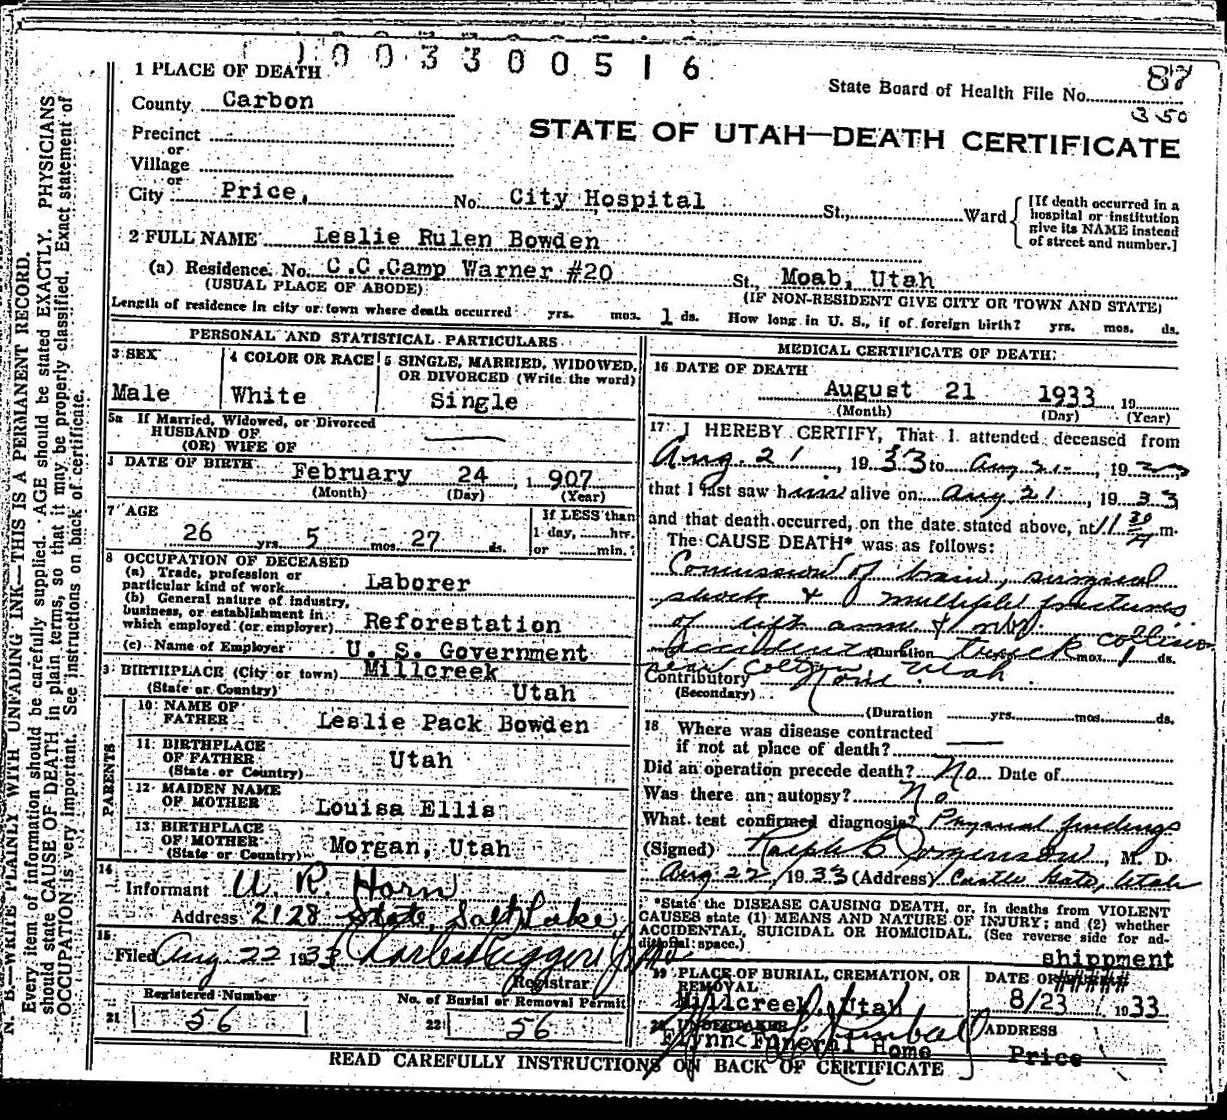 1 0 0 3 3 0 0 5 1 6
1 PLACE OF DEATH
State Board of Health File No. 87
350
County Carbon
STATE OF UTAH—DEATH CERTIFICATE
Precinct
or
Village
or
City Price, No. City Hospital St., Ward
[If death occurred in a hospital or institution give its NAME instead of street and number.]
2 FULL NAME Leslie Rulen Bowden
(a) Residence. No. C.C.Camp Warner #20 St., Moab, Utah
(USUAL PLACE OF ABODE) (IF NON-RESIDENT GIVE CITY OR TOWN AND STATE)
Length of residence in city or town where death occurred yrs. mos. 1 ds. How long in U. S., if of foreign birth? yrs. mos. ds.
PERSONAL AND STATISTICAL PARTICULARS
3 SEX
Male
4 COLOR OR RACE
White
5 SINGLE, MARRIED, WIDOWED, OR DIVORCED (Write the word)
Single
5a If Married, Widowed, or Divorced
HUSBAND OF
(OR) WIFE OF
DATE OF BIRTH February 24, 1907
(Month) (Day) (Year)
7 AGE
26 yrs. 5 mos. 27 ds.
If LESS than
1 day, hrs.
or min.
8 OCCUPATION OF DECEASED
(a) Trade, profession or
particular kind of work Laborer
(b) General nature of industry,
business, or establishment in
which employed (or employer) Reforestation
(c) Name of Employer U. S. Government
9 BIRTHPLACE (City or town) Millcreek
(State or Country) Utah
PARENTS
10 NAME OF
FATHER Leslie Pack Bowden
11 BIRTHPLACE
OF FATHER Utah
(State or Country)
12 MAIDEN NAME
OF MOTHER Louisa Ellis
13 BIRTHPLACE
OF MOTHER Morgan, Utah
(State or Country)
14
Informant U. R. Horn
Address 2128 State, Salt Lake
15
Filed Aug. 22 1933
Registrar
Registered Number
21 56
No. of Burial or Removal Permit
22 56
MEDICAL CERTIFICATE OF DEATH
16 DATE OF DEATH
August 21 1933, 19
(Month) (Day) (Year)
17 I HEREBY CERTIFY, That I attended deceased from
Aug. 21, 1933 to Aug 21, 1933
that I last saw him alive on Aug 21, 1933
and that death occurred, on the date stated above, at 11 30 m.
The CAUSE DEATH* was as follows:
Concussion of brain, surgical
shock & multiple fractures
of left arm &
Accident truck collision
Duration yrs. mos. 1 ds.
near Colton, Utah
Contributory None
(Secondary)
(Duration yrs. mos. ds.
18 Where was disease contracted
if not at place of death?
Did an operation precede death? No Date of
Was there an autopsy? No
What test confirmed diagnosis? Physical findings
(Signed) Ralph C Jorgenson, M. D.
Aug 22, 1933 (Address) Castle Gate, Utah
*State the DISEASE CAUSING DEATH, or, in deaths from VIOLENT
CAUSES state (1) MEANS AND NATURE OF INJURY; and (2) whether
ACCIDENTAL, SUICIDAL OR HOMICIDAL. (See reverse side for ad-
ditional space.)
shippment
19 PLACE OF BURIAL, CREMATION, OR
REMOVAL
Millcreek, Utah
DATE OR ######
8/23, 1933
20 UNDERTAKER
Flynn Funeral Home
ADDRESS
Price
READ CAREFULLY INSTRUCTIONS ON BACK OF CERTIFICATE
N. B.—WRITE PLAINLY WITH UNFADING INK—THIS IS A PERMANENT RECORD.
Every item of information should be carefully supplied. AGE should be stated EXACTLY. PHYSICIANS
should state CAUSE OF DEATH in plain terms, so that it may be properly classified. Exact statement of
OCCUPATION is very important. See instructions on back of certificate.